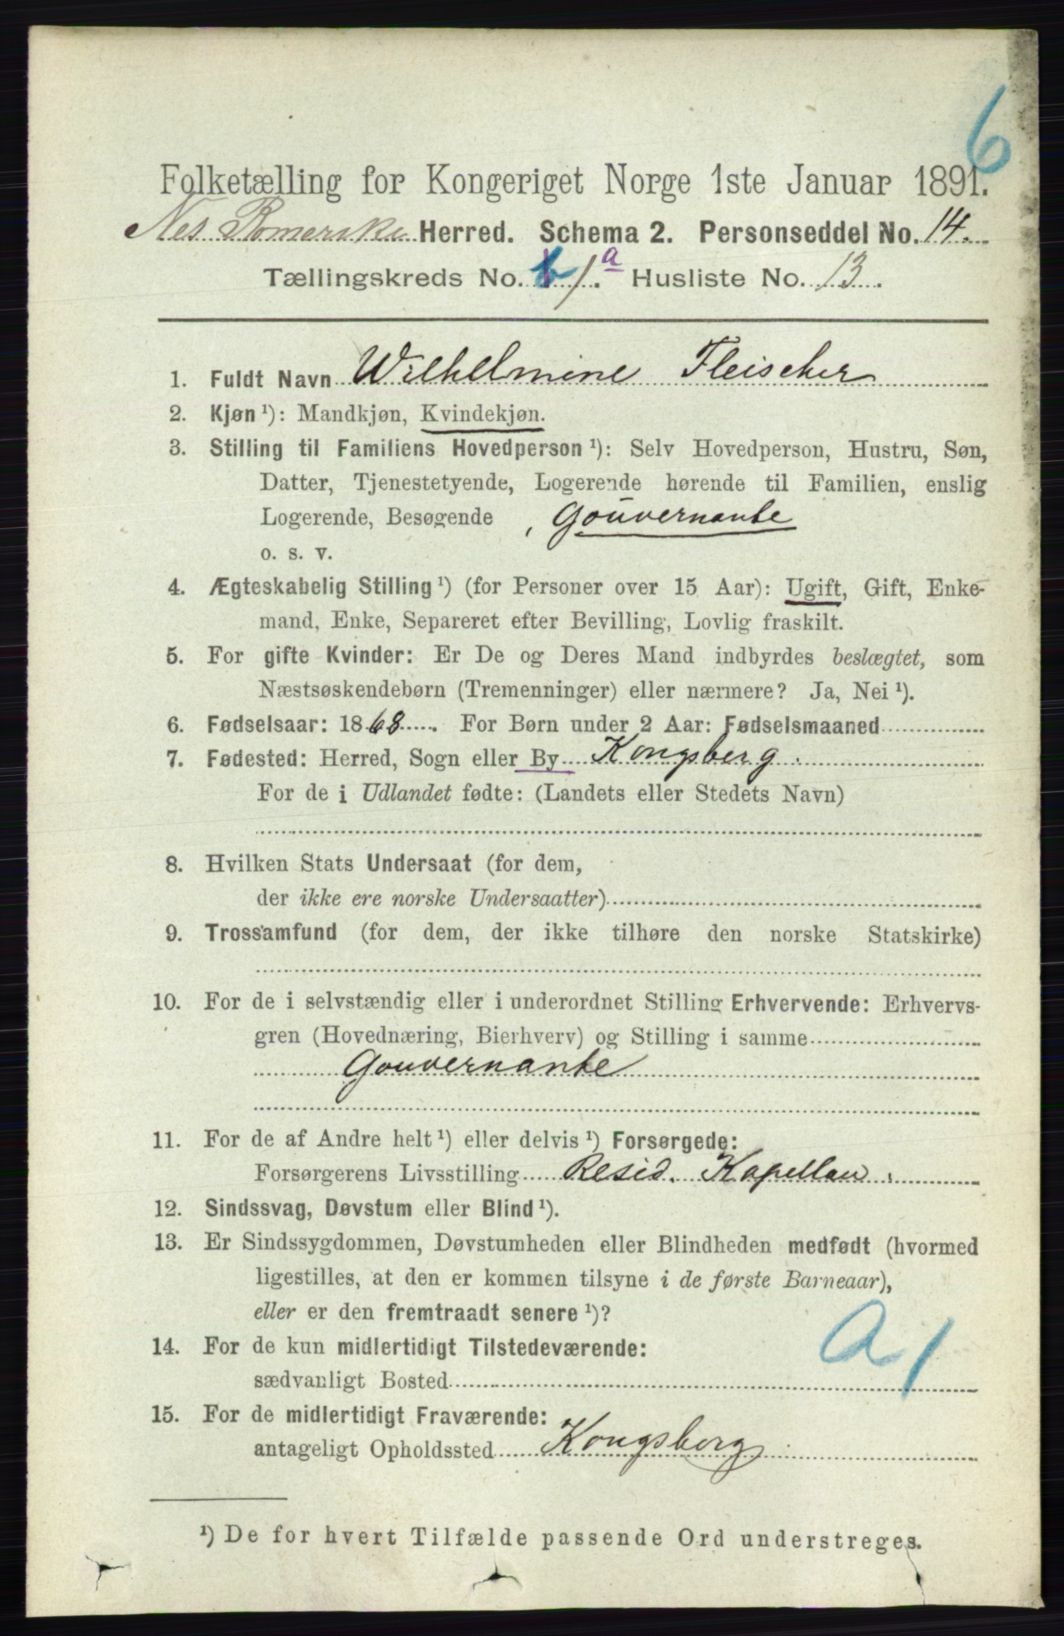 6
Folketælling for Kongeriget Norge 1ste Januar 1891.
Nes Romerike Herred. Schema 2. Personseddel No. 14.
Tællingskreds No. 1.a Husliste No. 13.
1. Fuldt Navn Wilhelmine Fleischer
2. Kjøn ¹): Mandkjøn, Kvindekjøn.
3. Stilling til Familiens Hovedperson ¹): Selv Hovedperson, Hustru, Søn,
Datter, Tjenestetyende, Logerende hørende til Familien, enslig
Logerende, Besøgende , Gouvernante
o. s. v.
4. Ægteskabelig Stilling ¹) (for Personer over 15 Aar): Ugift, Gift, Enke-
mand, Enke, Separeret efter Bevilling, Lovlig fraskilt.
5. For gifte Kvinder: Er De og Deres Mand indbyrdes beslægtet, som
Næstsøskendebørn (Tremenninger) eller nærmere? Ja, Nei ¹).
6. Fødselsaar: 1868. For Børn under 2 Aar: Fødselsmaaned
7. Fødested: Herred, Sogn eller By Kongsberg.
For de i Udlandet fødte: (Landets eller Stedets Navn)
8. Hvilken Stats Undersaat (for dem,
der ikke ere norske Undersaatter)
9. Trossamfund (for dem, der ikke tilhøre den norske Statskirke)
10. For de i selvstændig eller i underordnet Stilling Erhvervende: Erhvervs-
gren (Hovednæring, Bierhverv) og Stilling i samme
Gouvernante
11. For de af Andre helt ¹) eller delvis ¹) Forsørgede:
Forsørgerens Livsstilling Resid. Kapellan.
12. Sindssvag, Døvstum eller Blind ¹).
13. Er Sindssygdommen, Døvstumheden eller Blindheden medfødt (hvormed
ligestilles, at den er kommen tilsyne i de første Barneaar),
eller er den fremtraadt senere ¹)?
14. For de kun midlertidigt Tilstedeværende:
sædvanligt Bosted
a 1
15. For de midlertidigt Fraværende:
antageligt Opholdssted Kongsberg
¹) De for hvert Tilfælde passende Ord understreges.